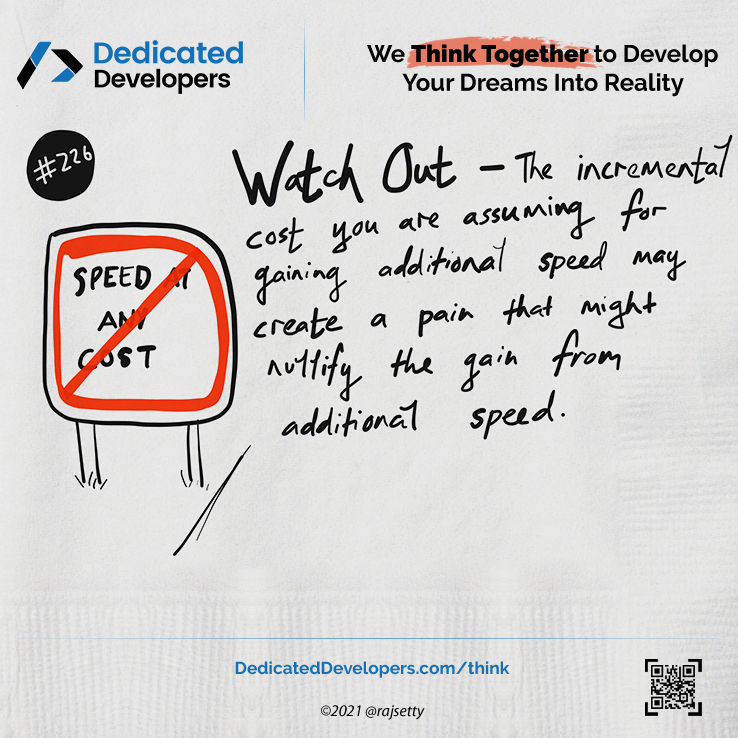 Dedicated
Developers
We Think Together to Develop
Your Dreams Into Reality
#226
SPEED AT
ANY
COST
Watch Out – The incremental
cost you are assuming for
gaining additional speed may
create a pain that might
nullify the gain from
additional speed.
DedicatedDevelopers.com/think
©2021 @rajsetty